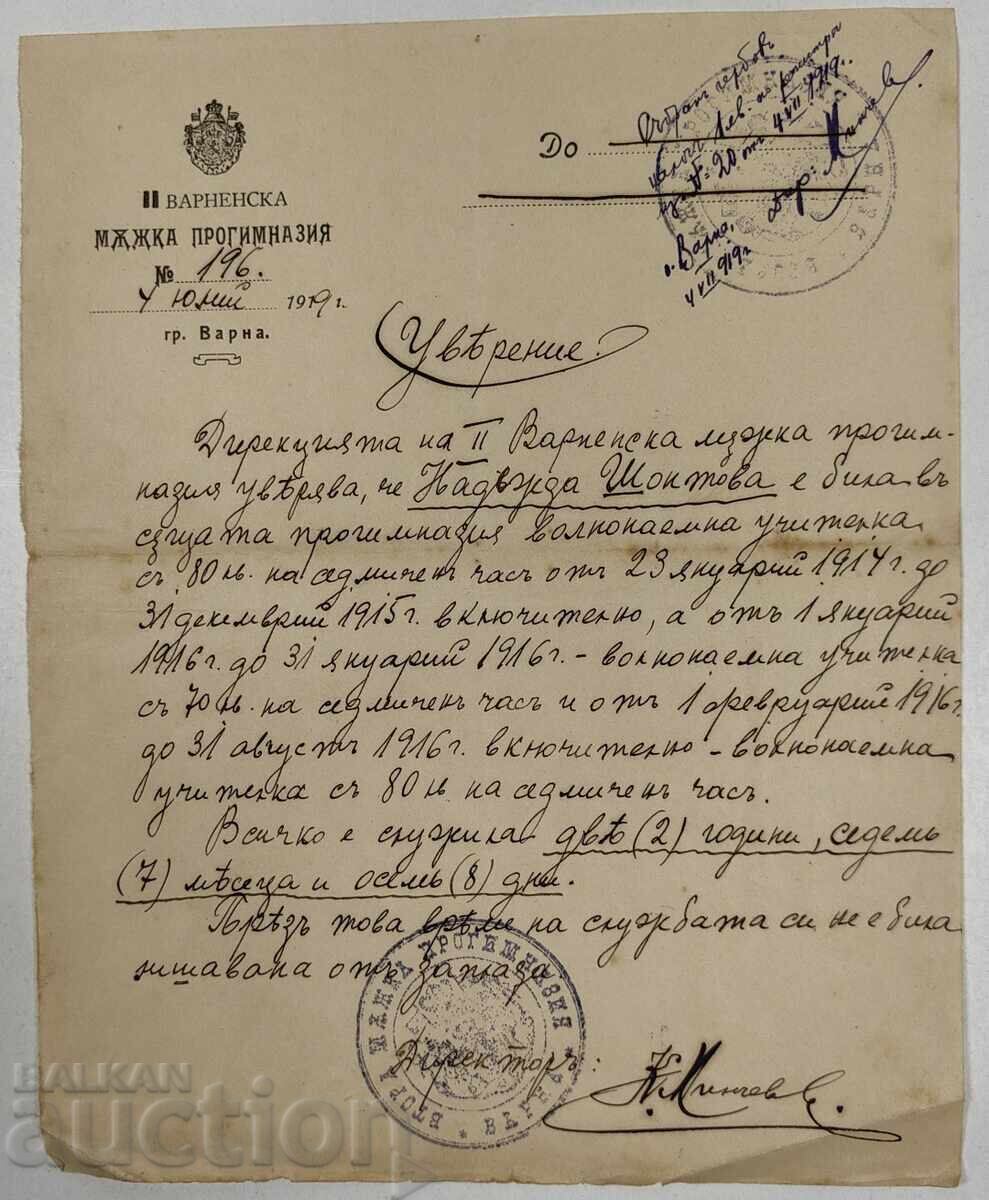 II ВАРНЕНСКА
МѪЖКА ПРОГИМНАЗИЯ
№ 196.
4 юлий 1919 г.
гр. Варна.
До
Събранъ гербовъ
налогъ 1 лев. по регистра
№ 20 отъ 4 VII 1919 г.
г. Варна,
4 VII 919 г.
Дир: Минчев
Увѣрение.
Дирекцията на II Варненска мѫжка прогим-
назия увѣрява, че Надѣжда Шонтова е била въ
сѫщата прогимназия волнонаемна учителка
съ 80 лв. на седмиченъ часъ отъ 23 януарий 1914 г. до
31 декемврий 1915 г. включително, а отъ 1 януарий
1916 г. до 31 януарий 1916 г. – волнонаемна учителка
съ 70 лв. на седмиченъ часъ и отъ 1 февруарий 1916 г.
до 31 августъ 1916 г. включително – волнонаемна
учителка съ 80 лв на седмиченъ часъ.
Всичко е служила двѣ (2) години, седемь
(7) мѣсеца и осемь (8) дни.
Прѣзъ това врѣме на службата си не е била
лишавана отъ заплата
Директоръ: К. Минчев.
ВТОРА МѪЖКА ПРОГИМНАЗИЯ * ВАРНА *
BALKAN
аукцион